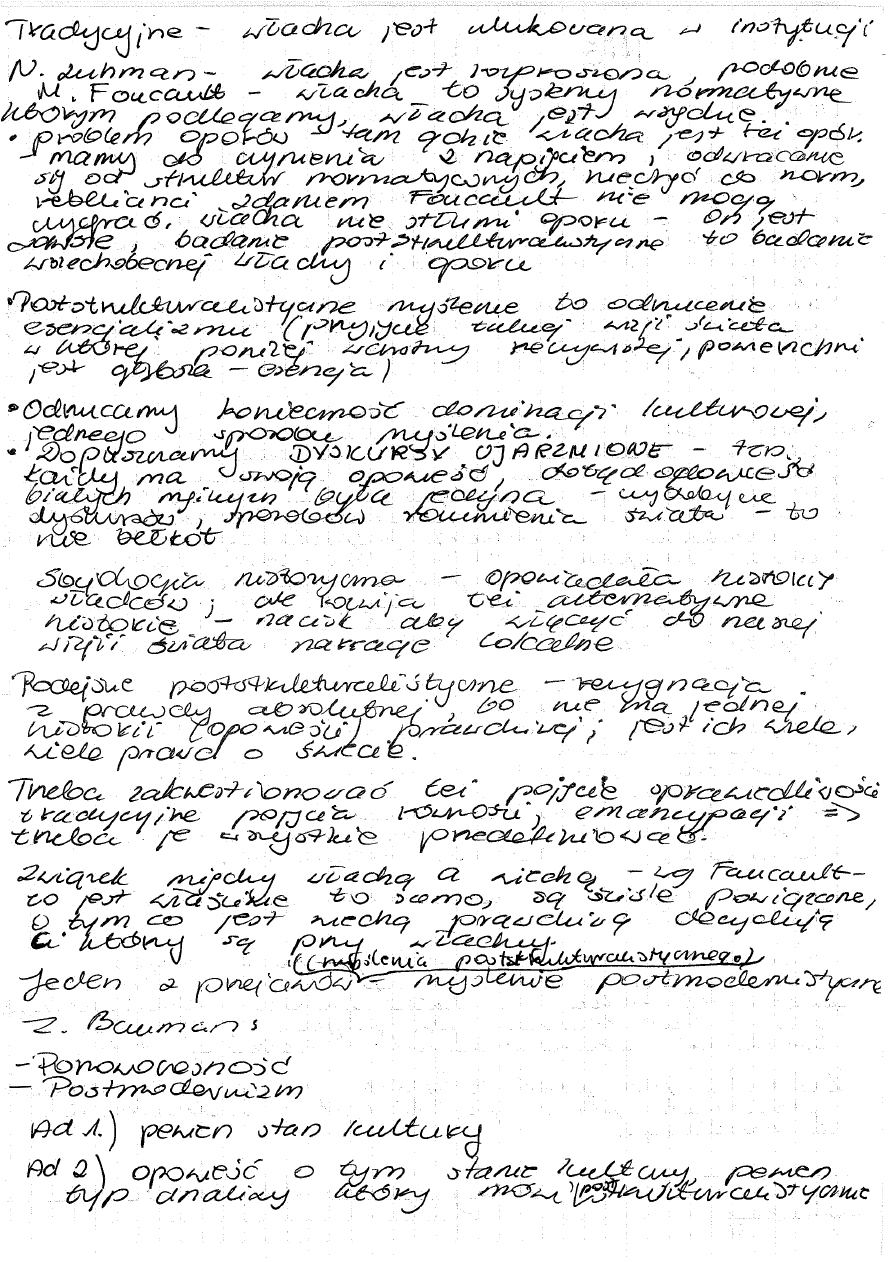 Tradycyjne - władza jest ulokowana w instytucji
N. Luhman - władza jest rozproszona, podobnie
M. Foucault - władza to systemy normatywne
którym podlegamy, władza jest wszędzie.
• problem oporów - tam gdzie władza jest też opór.
- mamy do czynienia z napięciem, odwracanie
się od struktur normatywnych, niechęć do norm,
rebelianci zdaniem Foucault nie mogą
wygrać, władza nie stłumi oporu - on jest
zawsze, badanie poststrukturalistyczne to badanie
wszechobecnej władzy i oporu
• Poststrukturalistyczne myślenie to odrzucenie
esencjalizmu (przyjęcie takiej wizji świata
w której poniżej warstwy powierzchni
jest głębsza - esencja)
• Odrzucamy konieczność dominacji kulturowej,
jednego sposobu myślenia.
• Dopuszczamy DYSKURSY UJARZMIONE - tzn.
każdy ma swoją opowieść, dotąd opowieść
białych mężczyzn była jedyna - wydobycie
dyskursów, sposobów rozumienia świata - to
nie bełkot
Socjologia historyczna - opowiadała historię
władców, ale rozwija też alternatywne
historie - nacisk aby włączyć do naszej
wizji świata narracje lokalne
Podejście poststrukturalistyczne - rezygnacja
z prawdy absolutnej, bo nie ma jednej
historii (opowieści) prawdziwej; jest ich wiele,
wiele prawd o świecie.
Trzeba zakwestionować też pojęcie sprawiedliwości
tradycyjne pojęcia równości, emancypacji =>
trzeba je wszystkie przedefiniować.
Związek między władzą a wiedzą - wg Faucault -
to jest właściwie to samo, są ściśle powiązane,
o tym co jest wiedzą prawdziwą decydują
ci którzy są przy władzy.
((myślenia poststrukturalistycznego)
Jeden z przejawów - myślenie postmodernistyczne
Z. Bauman:
- Ponowoczesność
- Postmodernizm
Ad 1.) pewien stan kultury
Ad 2) opowieść o tym stanie kultury, pewien
typ analizy który mówi poststrukturalistycznie